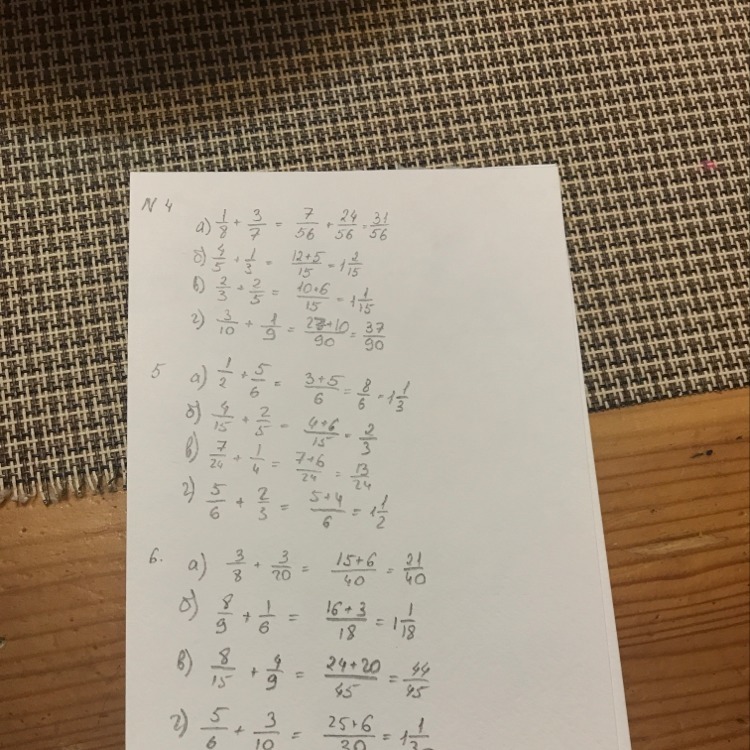 N 4
а) 1/8 + 3/7 = 7/56 + 24/56 = 31/56
б) 4/5 + 1/3 = 12+5/15 = 1 2/15
в) 2/3 + 2/5 = 10+6/15 = 1 1/15
г) 3/10 + 1/9 = 27+10/90 = 37/90
5 а) 1/2 + 5/6 = 3+5/6 = 8/6 = 1 1/3
б) 4/15 + 2/5 = 4+6/15 = 2/3
в) 7/24 + 1/4 = 7+6/24 = 13/24
г) 5/6 + 2/3 = 5+4/6 = 1 1/2
6. а) 3/8 + 3/20 = 15+6/40 = 21/40
б) 8/9 + 1/6 = 16+3/18 = 1 1/18
в) 8/15 + 4/9 = 24+20/45 = 44/45
г) 5/6 + 3/10 = 25+6/30 = 1